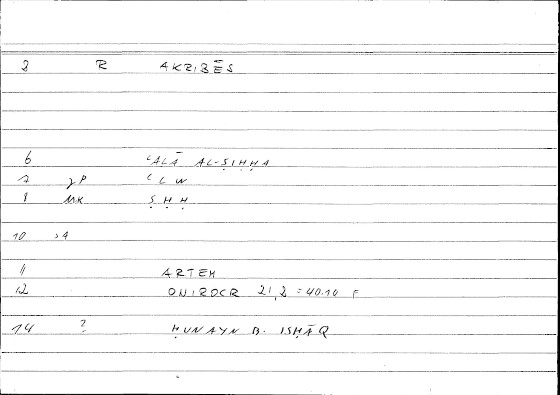 2 R AKRIBĒS
6 ʿALĀ AL-ṢIḤḤA
7 gP ʿLW
8 MK ṢḤḤ
10 >1
11 ARTEM
12 ONIROCR 21,2 = 40.10 F
14 ? ḤUNAYN B. ISḤĀQ